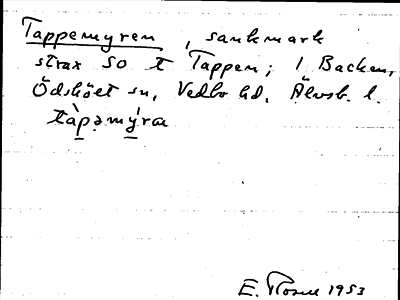 Tappemyren, sankmark
strax SO t Tappen; 1 Backen,
Ödsköet sn, Vedbo hd. Älvsb. l.
tàpəmýra
E. Rosell 1953